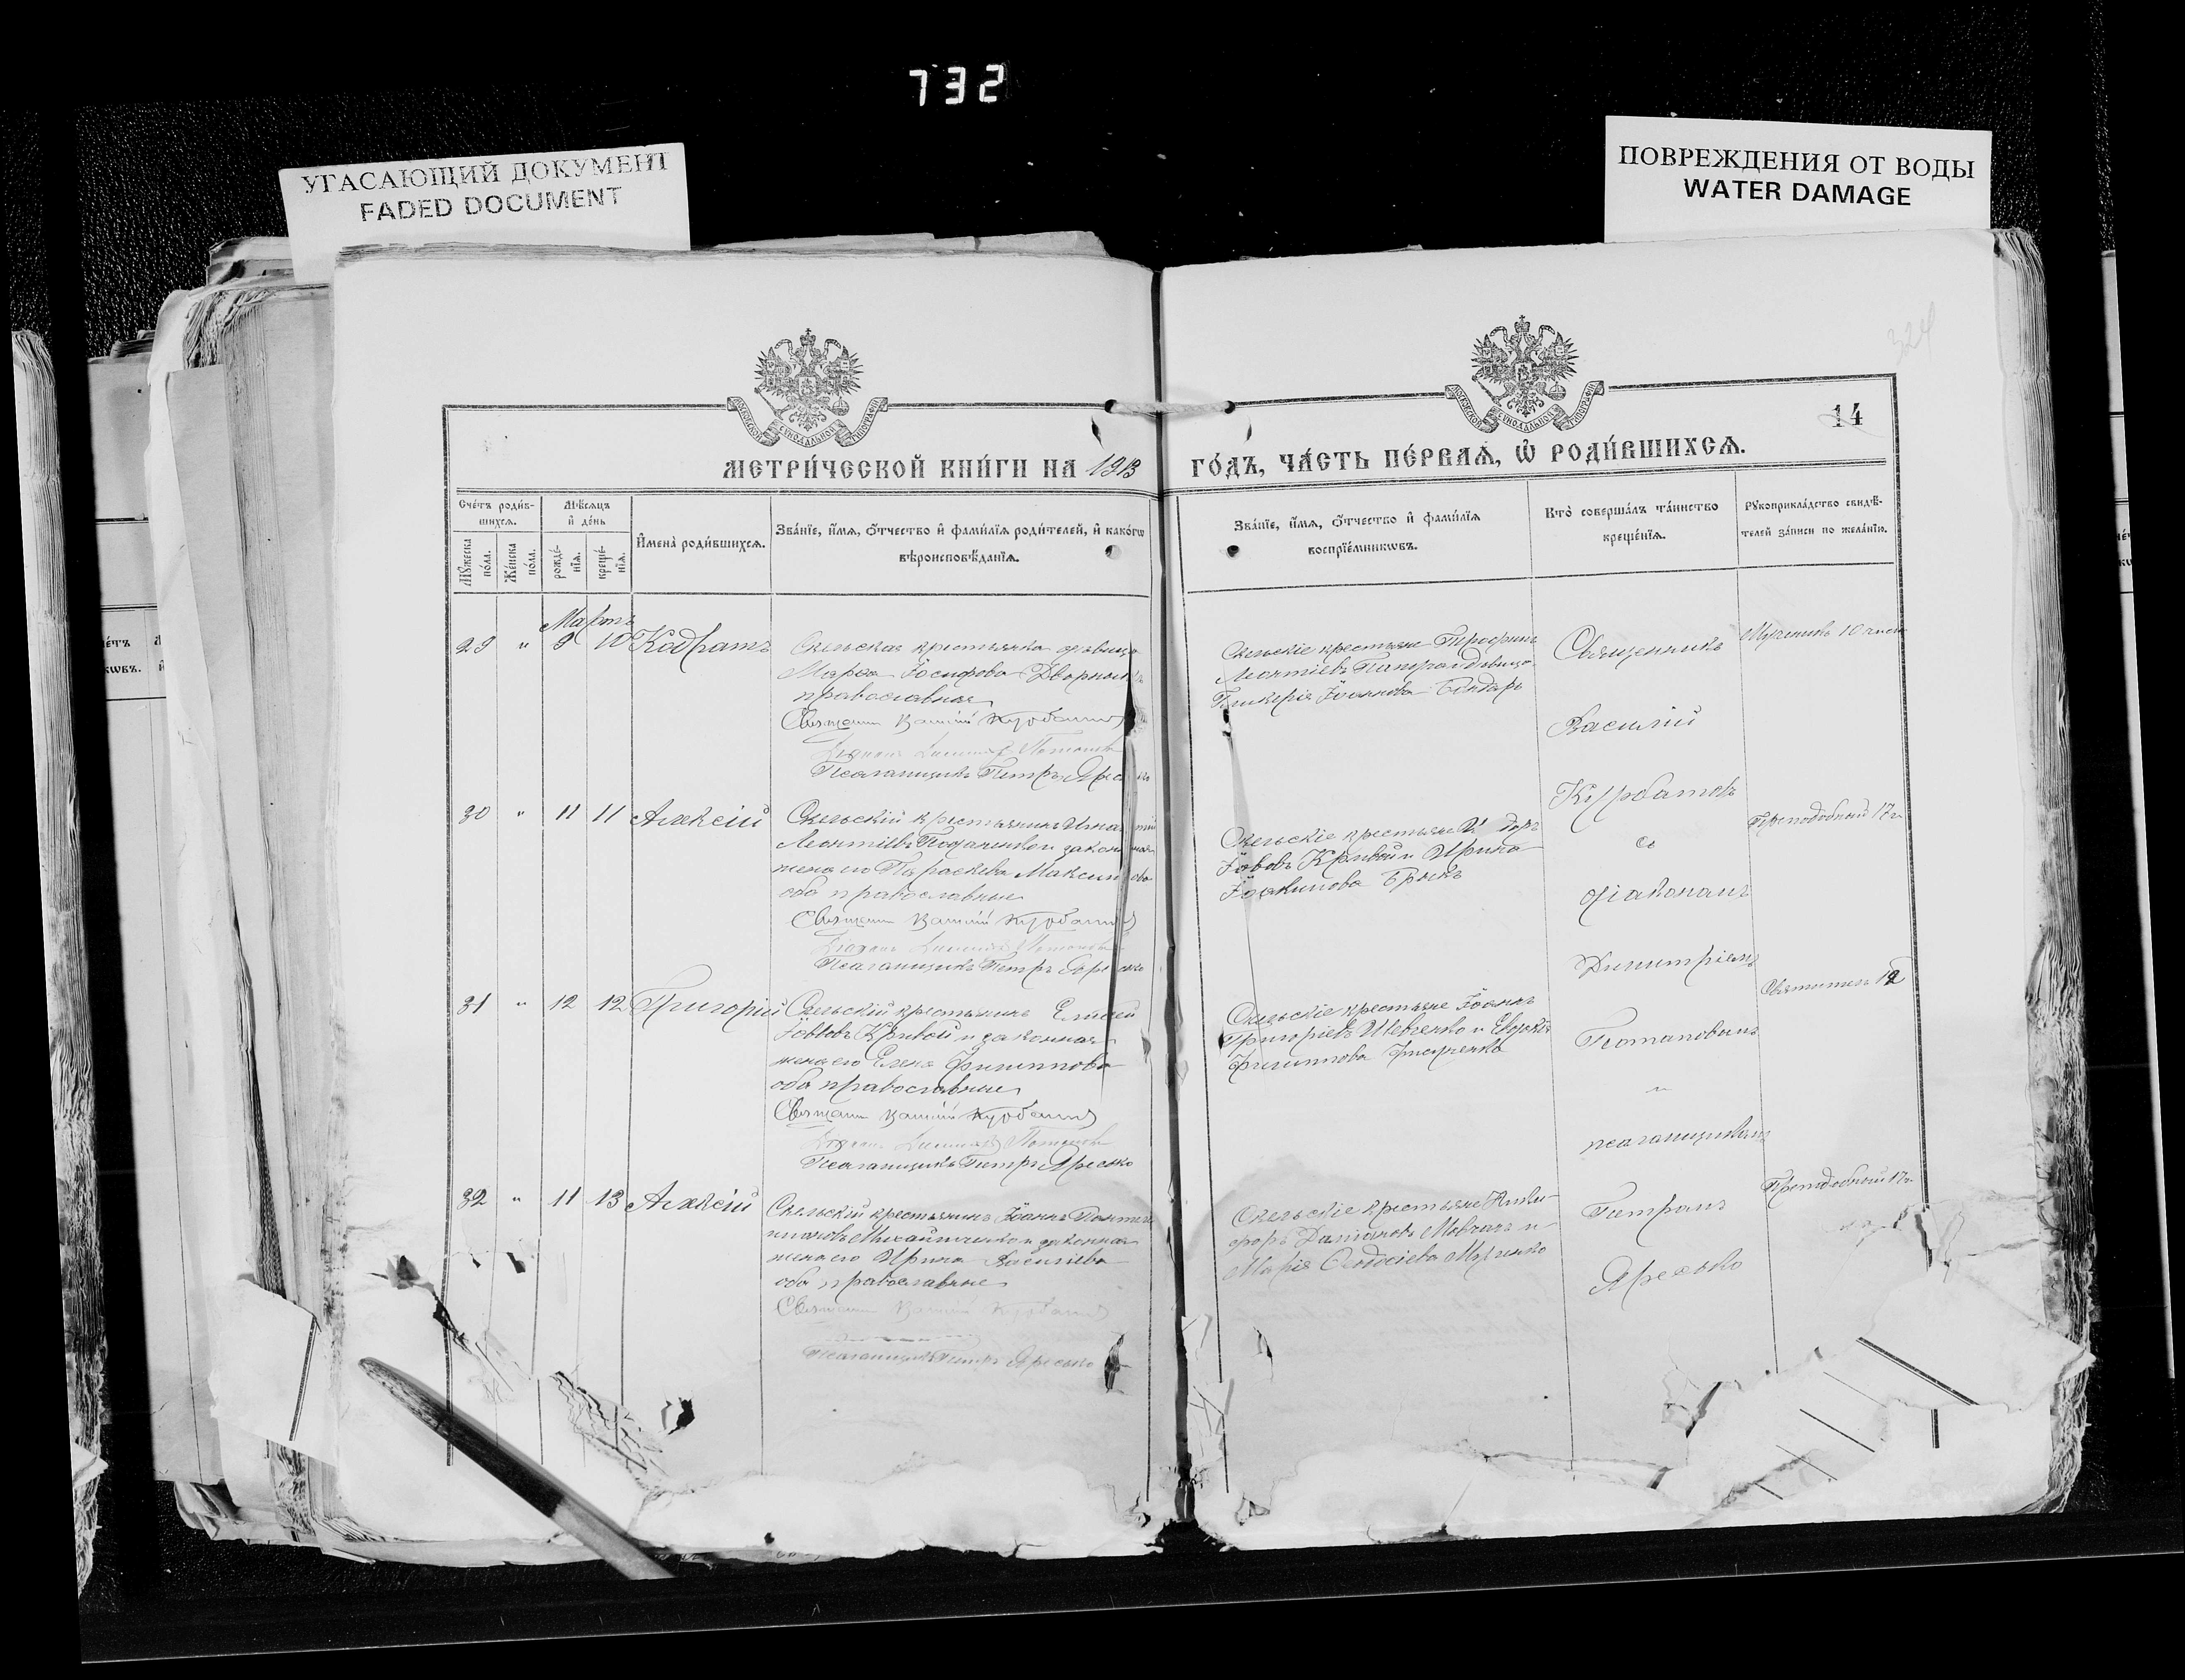 732
УГАСАЮЩИЙ ДОКУМЕНТ
FADED DOCUMENT
ПОВРЕЖДЕНИЯ ОТ ВОДЫ
WATER DAMAGE
324
14
МЕТРИ́ЧЕСКОЙ КНИ́ГИ НА 1913 ГО́ДЪ, ЧА́СТЬ ПЕ́РВАѦ, Ѡ҆ РОДИ́ВШИХСѦ.
Сче́тъ роди́в-
шихсѧ.
Мѣ́сѧцъ
и҆ де́нь
Мꙋ́жеска
по́ла.
Же́нска
по́ла.
рожде́-
нїѧ.
креще́-
нїѧ.
И҆мена̀ роди́вшихсѧ.
Зва́нїе, и҆́мѧ, ѻ҆́тчество и҆ фами́лїѧ роди́телей, и҆ како́гѡ
вѣроисповѣ́данїѧ.
Зва́нїе, и҆́мѧ, ѻ҆́тчество и҆ фами́лїѧ
воспрїе́мникѡвъ.
Кто̀ соверша́лъ та́инство
креще́нїѧ.
Рꙋкоприкла́дство свидѣ́-
телей за́писи по жела́нїю.
Мартъ
29 " 9 10 Кодратъ
Скельская крестьянка дѣвица
Марѳа Іосифова
православная
Священ. Василій Курбатов
Діаконъ Димитрій Потапов
Псаломщикъ Петръ
Скельскіе крестьяне Трофимъ
Леонтіевъ дѣвица
Гликерія Іоаннова Бондарь
Священникъ
Василій
Курбатовъ
со
діакономъ
Димитріемъ
Потаповымъ
и
псаломщикомъ
Петромъ
Яресько
Мученикъ 10 числа
30 " 11 11 Алексій
Скельскій крестьянинъ
Леонтіевъ и законная
жена его Параскева Максимова
оба православные
Священ. Василій Курбатов
Діаконъ Димитрій Потапов
Псаломщикъ Петръ Яресько
Скельскіе крестьяне
Іововъ Кривой и Ирина
Іоакимова
Преподобный 17 ч.
31 " 12 12 Григорій
Скельскій крестьянинъ Елисей
Іововъ Кривой и законная
жена его Елена Филиппова
оба православные
Священ. Василій Курбатов
Діаконъ Димитрій Потапов
Псаломщикъ Петръ Яресько
Скельскіе крестьяне Іоаннъ
Григоріевъ Шевченко и Евдокія
Филиппова
Святитель 12
32 " 11 13 Алексій
Скельскій крестьянинъ Іоаннъ
и законная
жена его Ирина Василіева
оба православные
Священ. Василій Курбатов
Псаломщикъ Петръ Яресько
Скельскіе крестьяне Ники-
форъ Даміановъ Мовчанъ и
Марія Ѳеодосіева
Преподобный 17 ч.